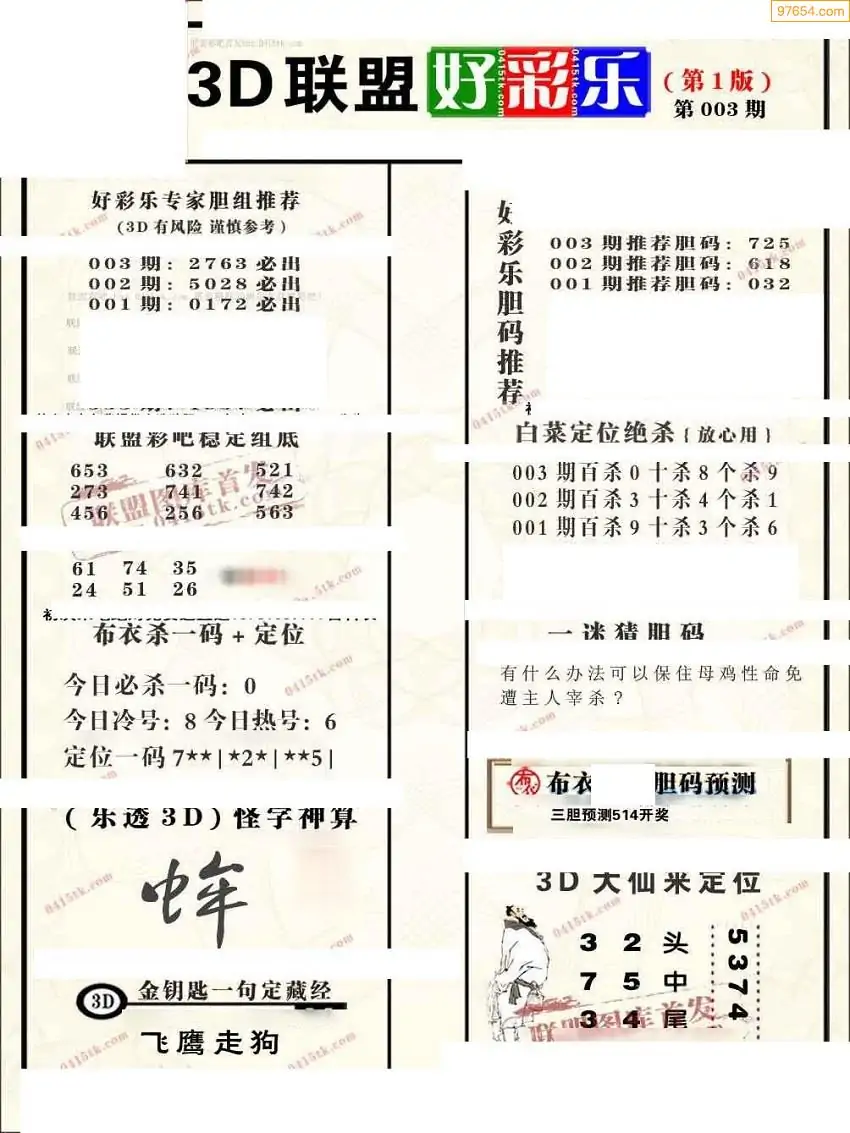 97654.com
3D联盟好彩乐
(第1版)
第003期
好彩乐专家胆组推荐
(3D有风险 谨慎参考)
003期: 2763必出
002期: 5028必出
001期: 0172必出
联盟彩吧稳定组底
653 632 521
273 741 742
456 256 563
61 74 35
24 51 26
布衣杀一码+定位
今日必杀一码: 0
今日冷号: 8 今日热号: 6
定位一码7**|*2*|**5|
(乐透3D)怪字神算
蛑
3D
金钥匙一句定藏经
飞鹰走狗
好彩乐胆码推荐
003期推荐胆码: 725
002期推荐胆码: 618
001期推荐胆码: 032
白菜定位绝杀{放心用}
003期百杀0十杀8个杀9
002期百杀3十杀4个杀1
001期百杀9十杀3个杀6
一迷猜胆码
有什么办法可以保住母鸡性命免
遭主人宰杀?
布衣 胆码预测
三胆预测514开奖
3D大仙来定位
3 2 头
7 5 中
3 4 尾
5374
联盟图库首发
0415tk.com